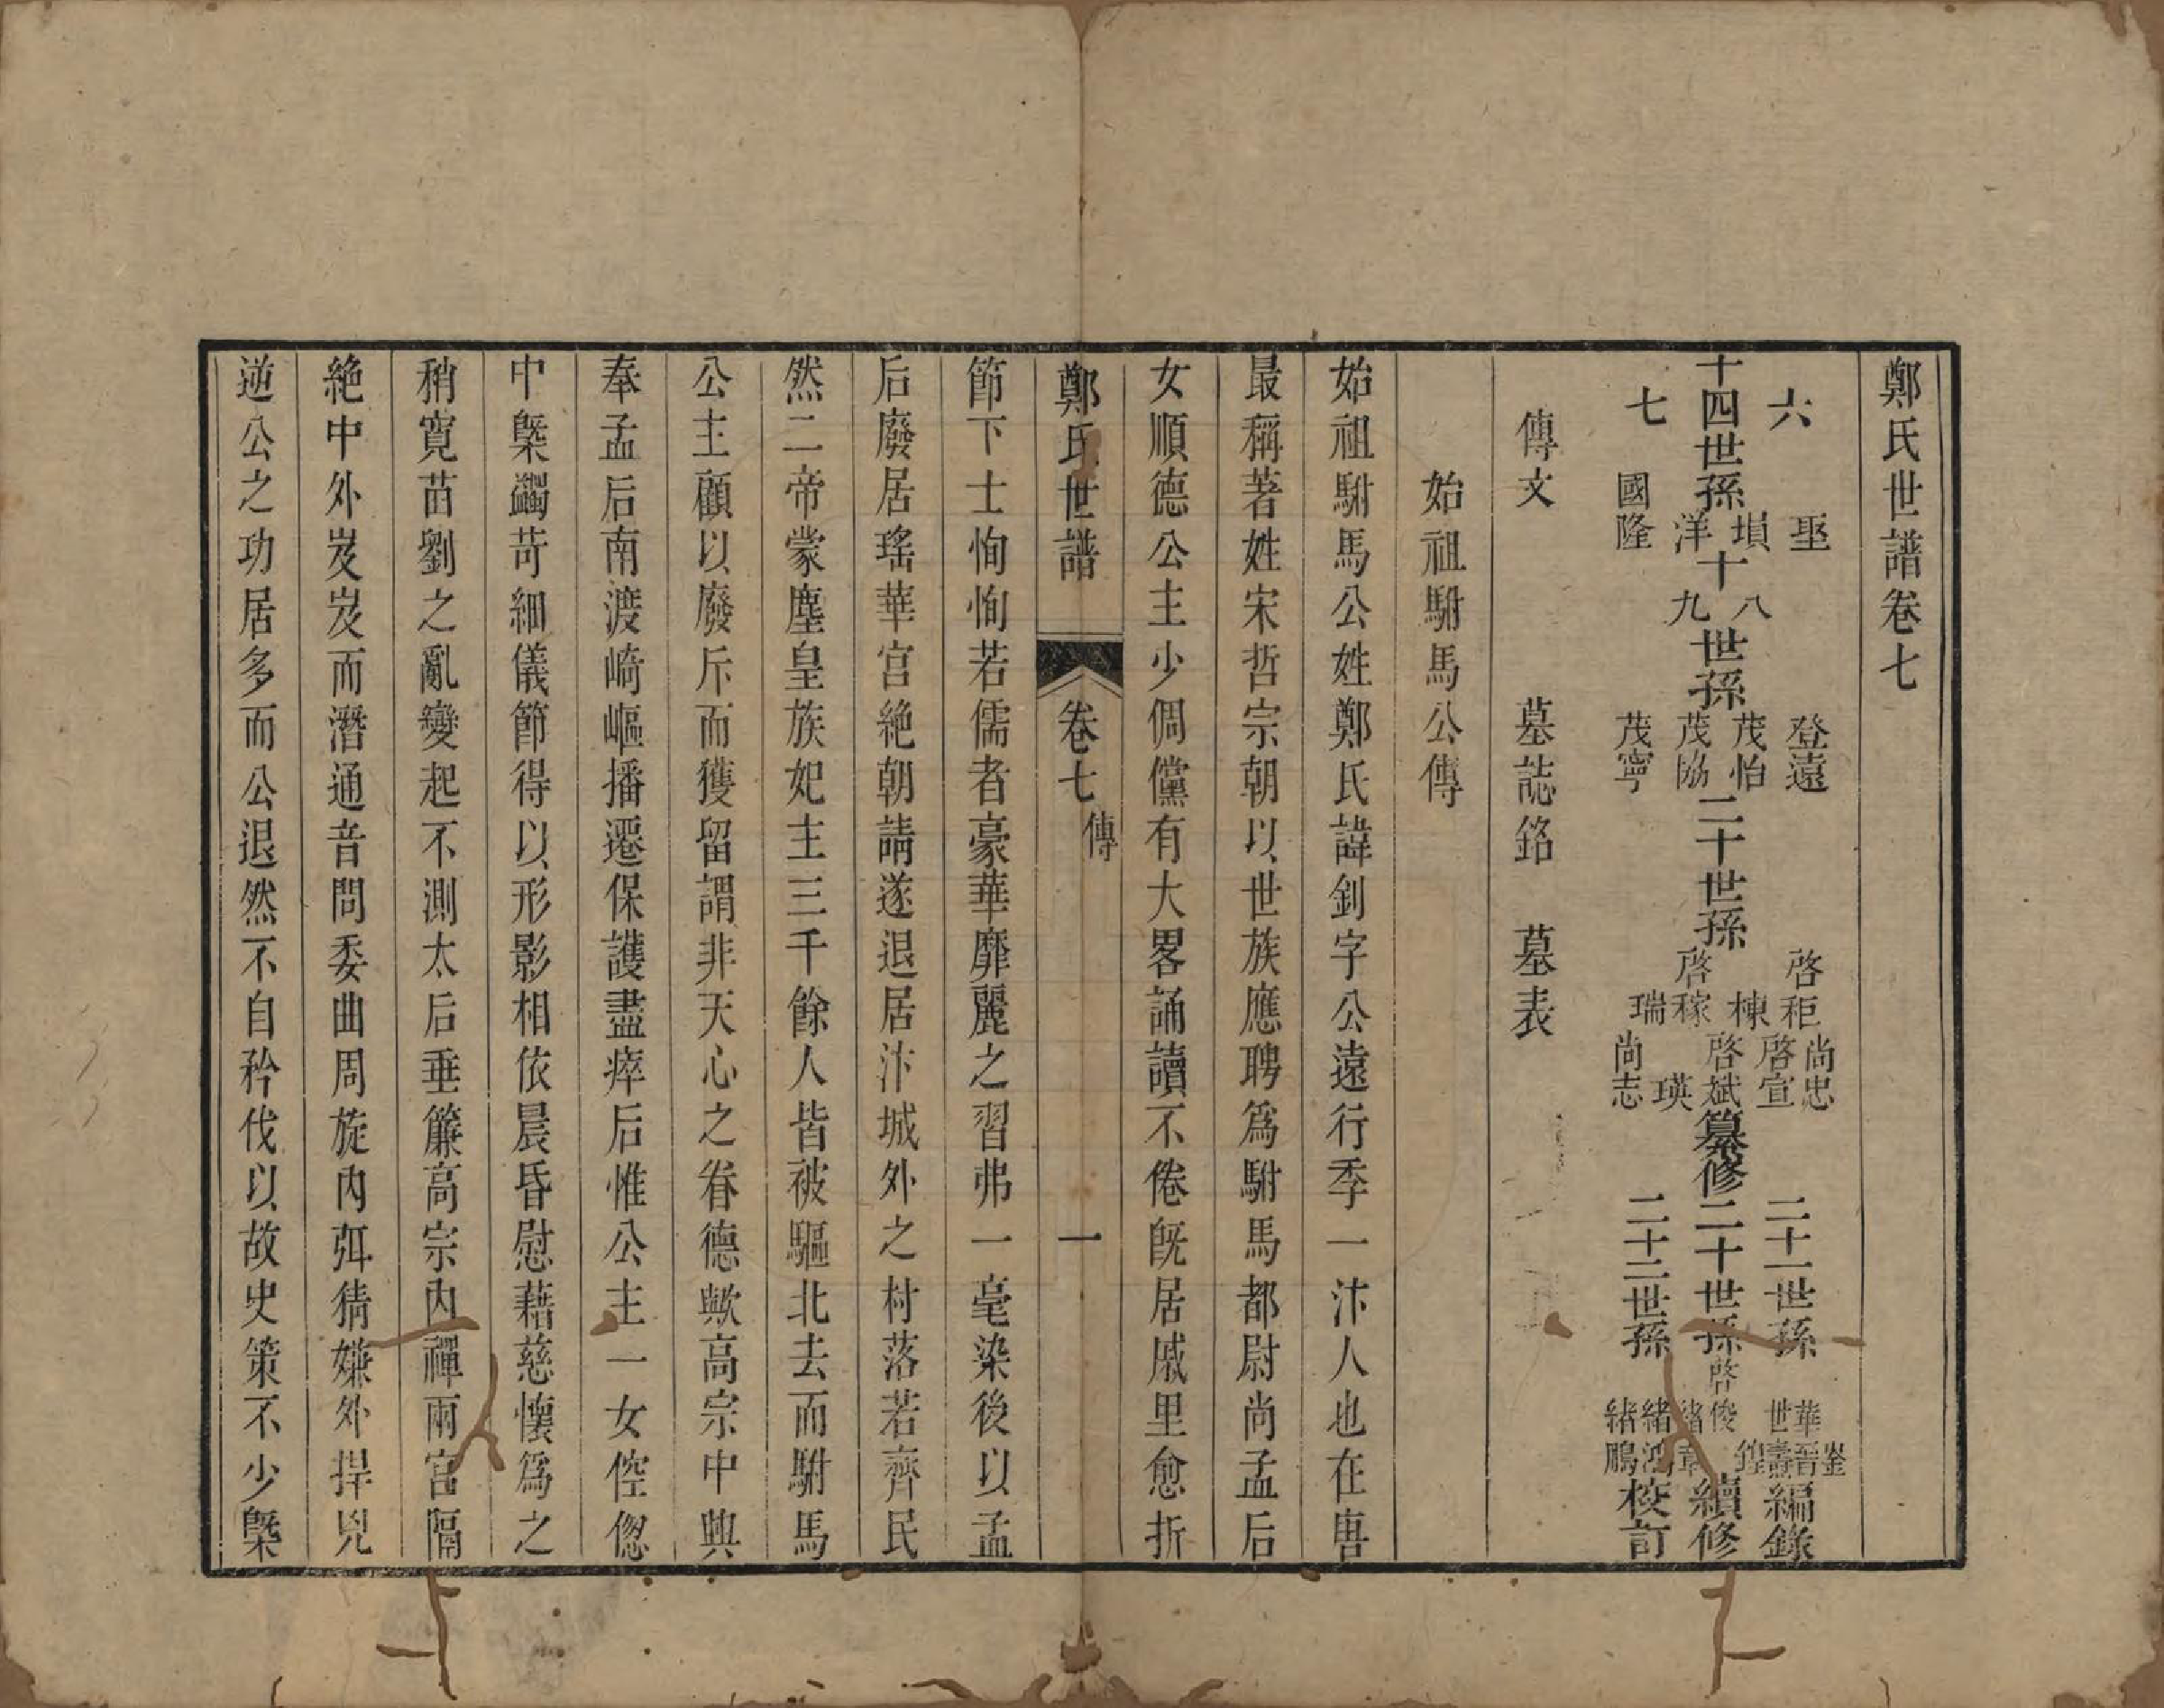 鄭氏世譜卷七
六
十四世孫
七
堲
塤
洋
國隆
十八
九
世孫
登遠
茂怡
茂協
茂寧
二十世孫
啓秬
棟
啓稼
瑞
尚忠
啓宣
啓斌
瑛
尚志
纂修
二十一世孫
二十世孫
二十二世孫
華
世
啓俊
緒
緒
緒鵬
編錄
續修
校訂
傳文　墓誌銘　墓表
始祖駙馬公傳
始祖駙馬公姓鄭氏諱釗字公遠行季一汴人也在唐
最稱著姓宋哲宗朝以世族應聘爲駙馬都尉尚孟后
女順德公主少倜儻有大畧誦讀不倦旣居戚里愈折
鄭氏世譜　卷七　傳　一
節下士恂恂若儒者豪華靡麗之習弗一毫染後以孟
后廢居瑤華宫絶朝請遂退居汴城外之村落若齊民
然二帝蒙塵皇族妃主三千餘人皆被驅北去而駙馬
公主顧以廢斥而獲留謂非天心之眷德歟高宗中興
奉孟后南渡崎嶇播遷保護盡瘁后惟公主一女倥傯
中槩蠲苛細儀節得以形影相依晨昏慰藉慈懷爲之
稍寛苗劉之亂變起不測太后垂簾高宗内禪兩宫隔
絶中外岌岌而潛通音問委曲周旋内弭猜嫌外捍兇
逆公之功居多而公退然不自矜伐以故史策不少槩